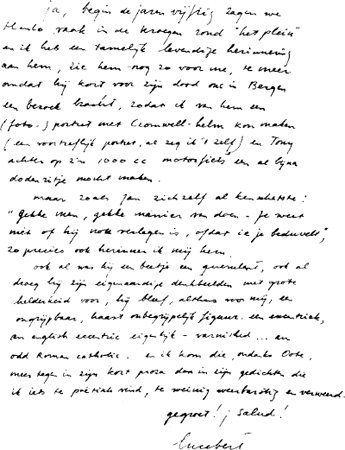 ja, begin de jaren vijftig zagen we
Hanlo vaak in de kroegen rond "het plein"
en ik heb een tamelijk levendige herinnering
aan hem, zie hem nog zo voor me, te meer
omdat hij kort voor zijn dood ons in Bergen
een bezoek bracht, zodat ik van hem een
(foto-) portret met Cromwell-helm kon maken
(een voortreffelijk portret, al zeg ik 't zelf) en Tony
achter op z'n 1000 cc motorfiets een al bijna
dodenritje mocht maken.
maar zoals Jan zichzelf al kenschetste:
"gekke man, gekke manier van doen - je weet
niet of hij nou verlegen is, of dat ie je beduvelt",
zo precies ook herinner ik mij hem.
ook al was hij een beetje een querulant, ook al
droeg hij zijn eigenaardige denkbeelden met grote
helderheid voor, hij bleef, althans voor mij, een
ongrijpbaar, haast onbegrijpelijk figuur. een excentriek,
an english eccentric eigenlijk - varnished ... an
odd Roman catholic. en ik kom die, ondanks Oote,
meer tegen in zijn kort proza dan in zijn gedichten die
ik iets te poëtisch vind, te weinig weerbarstig en verweerd.
gegroet! ¡ salud!
Lucebert